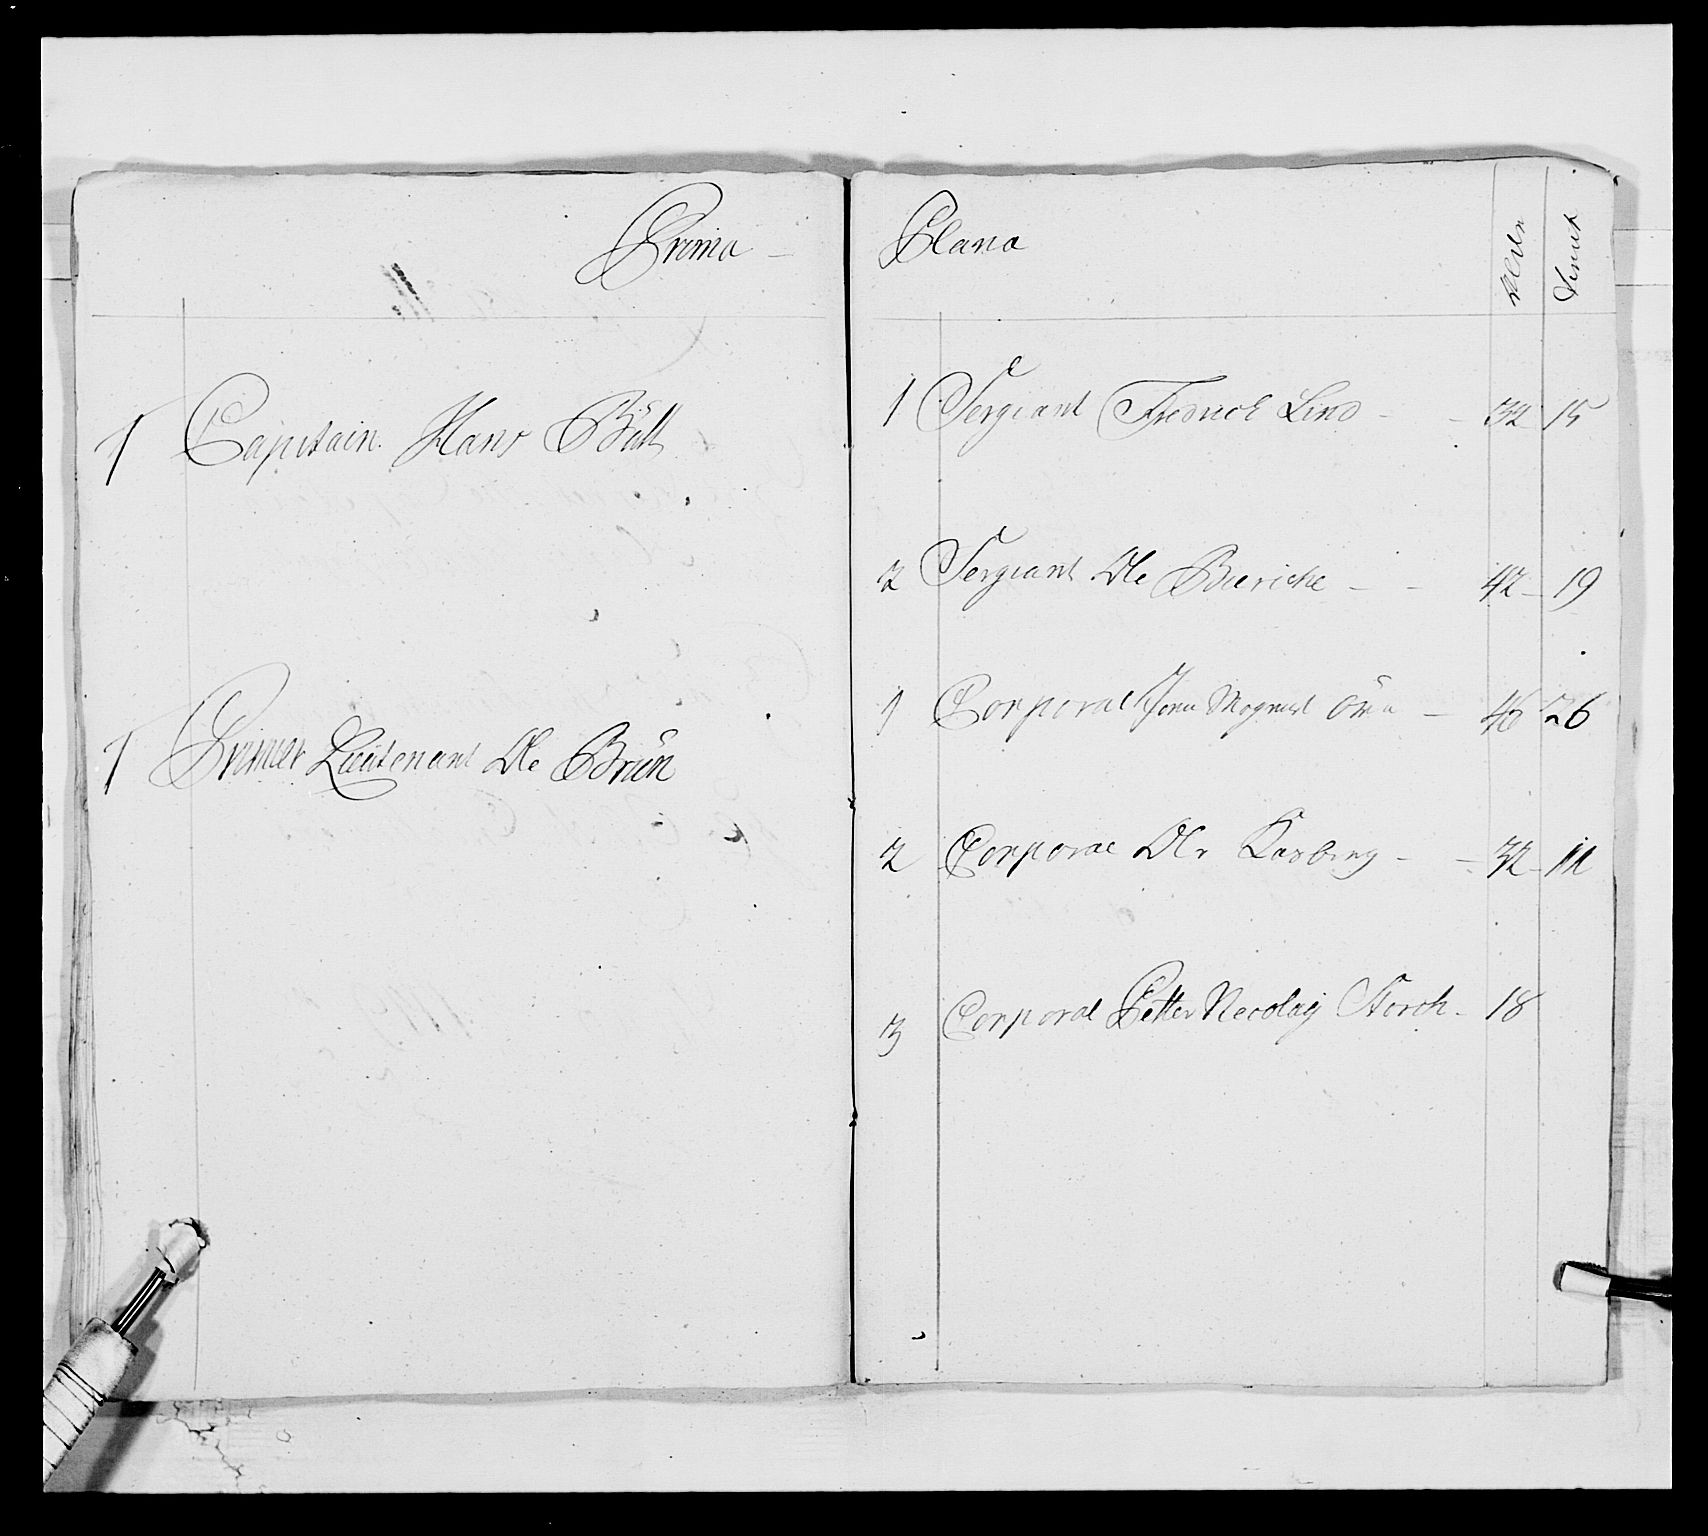 Prima –
1 Capitain Hans Bütt
1 Primier Lieutenant Ole Brün
Plana
Alder
Tienist
1 Sergiant Fredrich Lind – – 32 15
2 Sergiant Ole Bieriche – – 42 – 19
1 Corporal Jens Mogens – 46 26
2 Corporal Ole Kasberg – – 32 – 11
3 Corporal Petter Necolaij Storch – 18